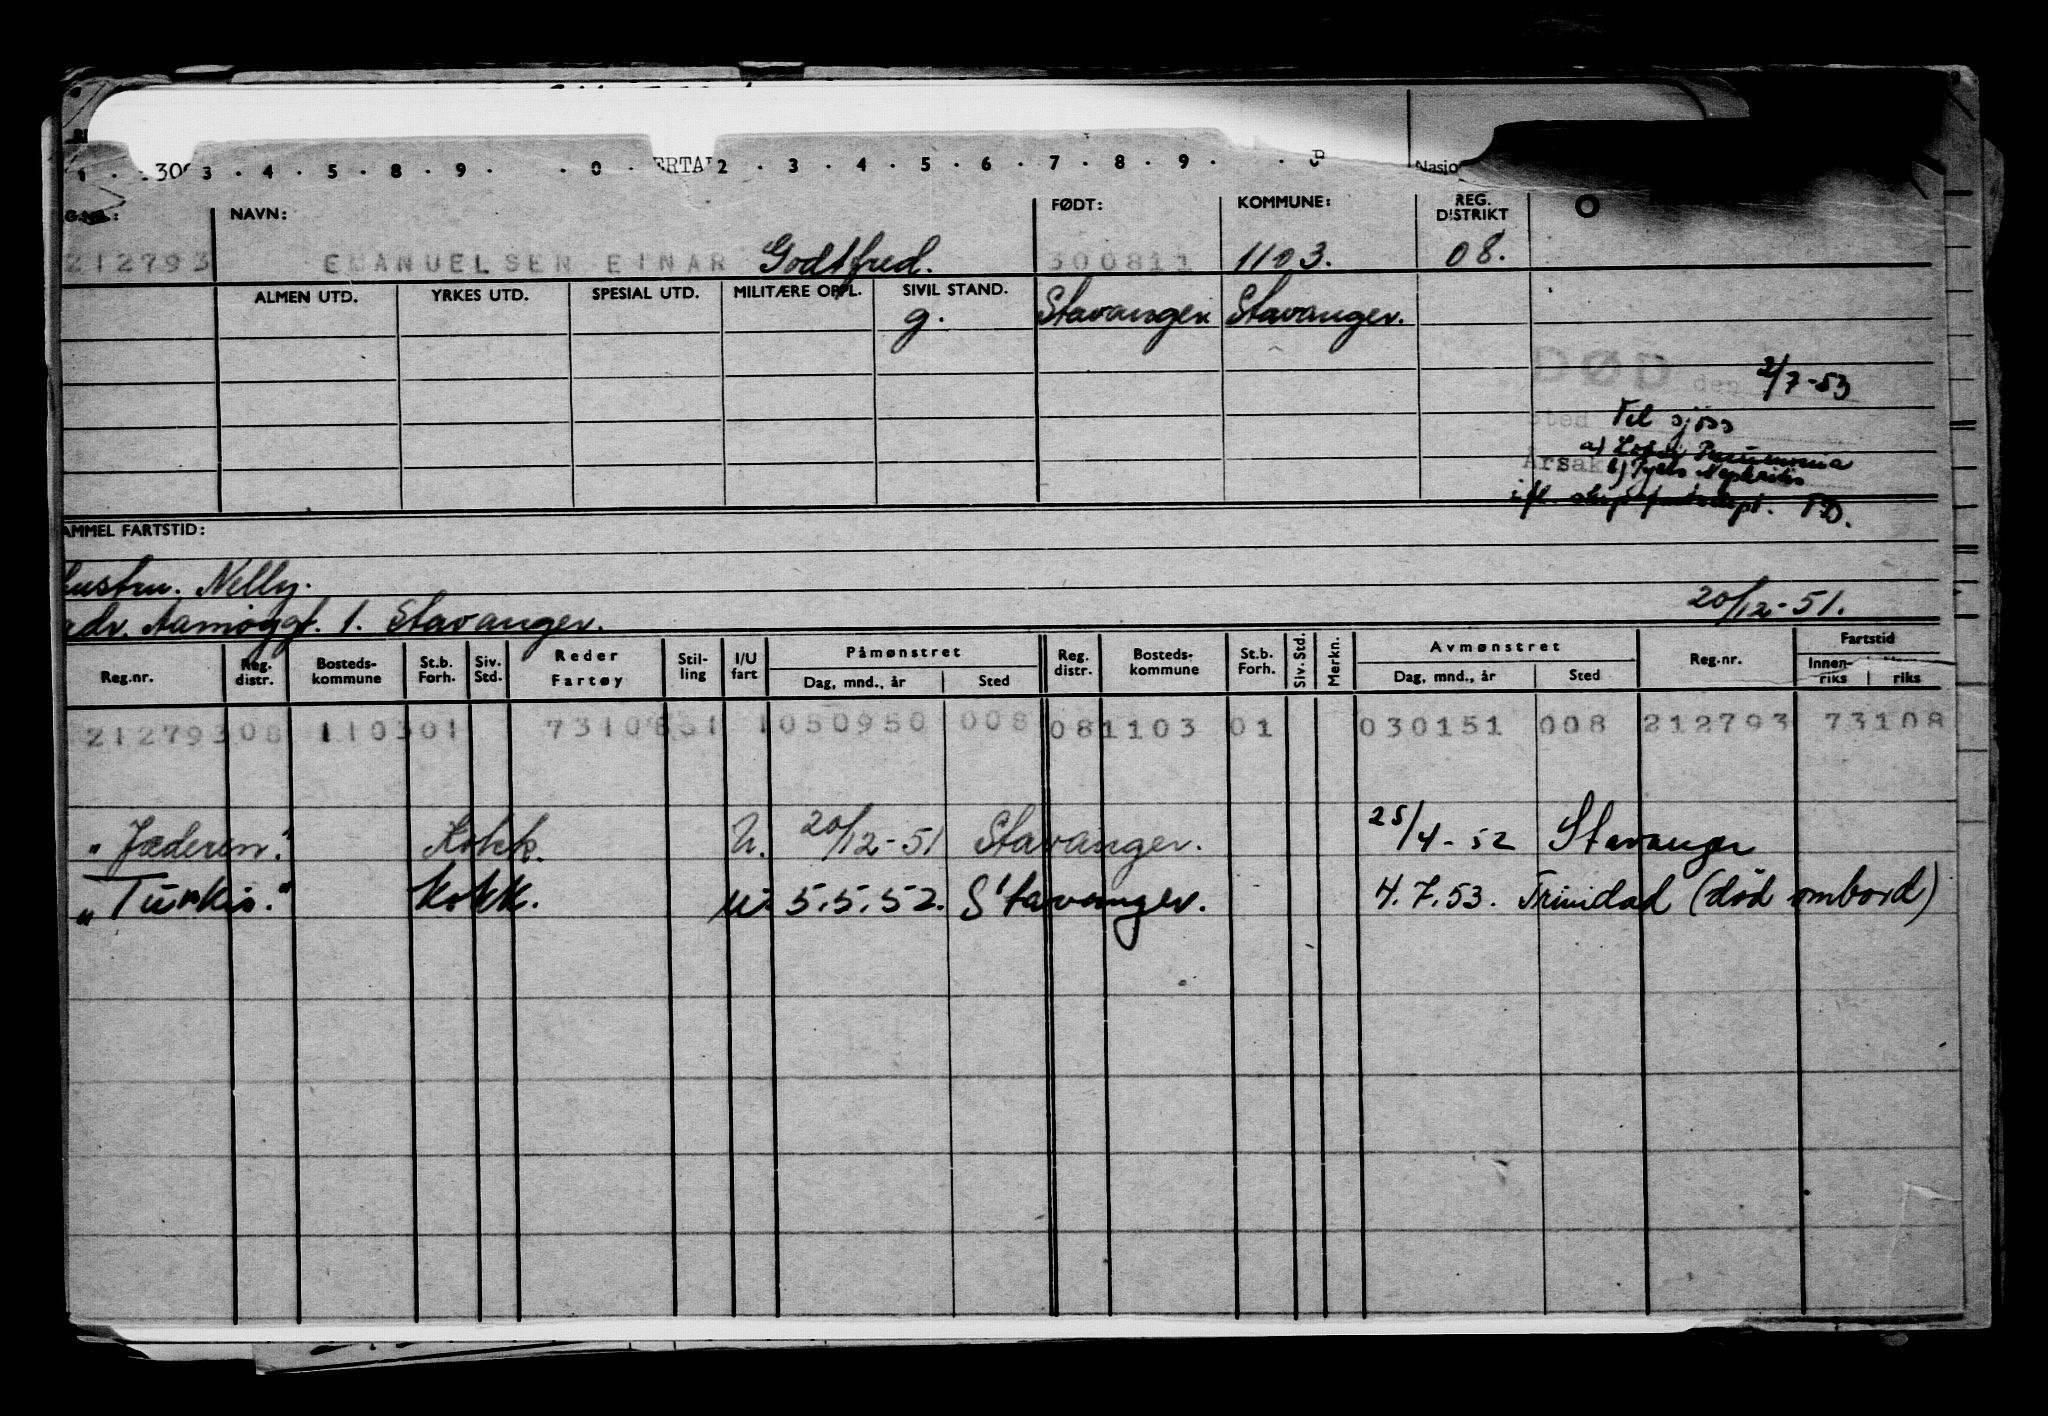 1 . 300 3 . 4 . 5 . 8 . 9 . . 0 . ERTA 2 . 3 . 4 . 5 . 6 . 7 . 8 . 9 .
Nasjo
NAVN: FØDT: KOMMUNE: REG. DISTRIKT O
212793 EMANUELSEN EINAR Godtfred. 300811 1103. 08.
ALMEN UTD. YRKES UTD. SPESIAL UTD. MILITÆRE OPPL. SIVIL STAND.
g. Stavanger Stavanger.
DØD den 2/7-53
Sted Til sjøss
a) Pneumonia
Årsak b) Nephritis
ifl. T.D.
AMMEL FARTSTID:
Hustru. Nelly.
adv. Aamøygt. 1. Stavanger. 20/12-51.
Reg.nr. Reg. distr. Bosteds-kommune St.b. Forh. Siv. Std. Reder Fartøy Stil-ling I/U fart Påmønstret Dag, mnd., år Sted Reg. distr. Bosteds-kommune St.b. Forh. Siv. Std. Merkn. Avmønstret Dag, mnd., år Sted Reg.nr. Fartstid Innen-riks riks
212793 08 1103 01 73108 51 1 050950 008 08 1103 01 030151 008 212793 73108
"Jæderen." Kokk. U. 20/12-51 Stavanger. 25/4-52 Stavanger
"Turkis." Kokk. U. 5.5.52. Stavanger. 4.7.53. Trinidad (død ombord)